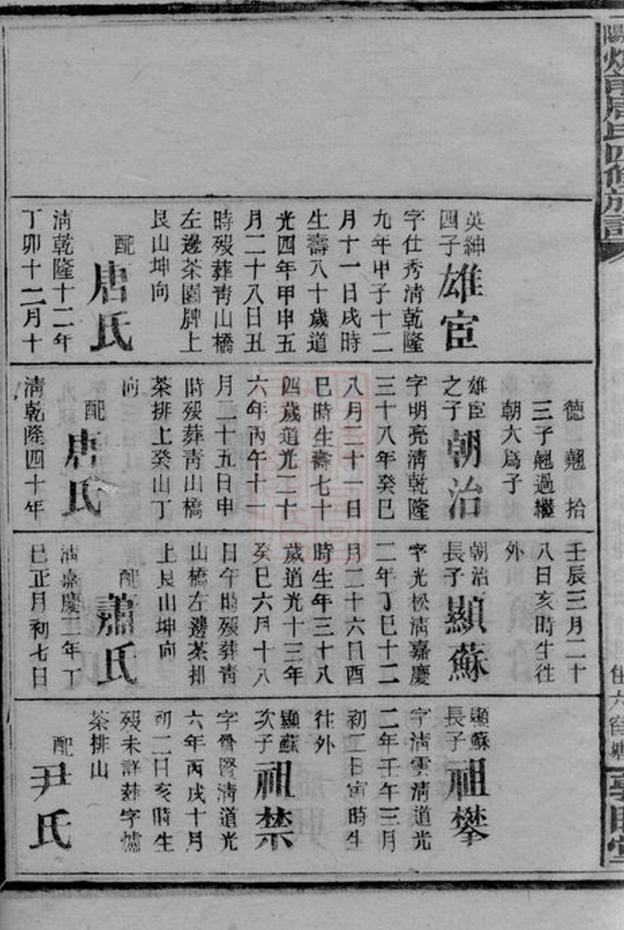 英紳
四子
雄宦
字仕秀淸乾隆
九年甲子十二
月十一日戌時
生壽八十歲道
光四年甲申五
月二十八日丑
時歿葬靑山橋
左邊茶園牌上
艮山坤向
配
唐氏
淸乾隆十二年
丁卯十二月十
德翹拾
三子翹過繼
朝大爲子
雄宦
之子
朝治
字明亮淸乾隆
三十八年癸巳
八月二十一日
巳時生壽七十
四歲道光二十
六年丙午十一
月二十五日申
時歿葬靑山橋
茶排上癸山丁
向
配
唐氏
淸乾隆四十年
壬辰三月二十
八日亥時生往
外
朝治
長子
顯蘇
字光松淸嘉慶
二年丁巳十二
月二十六日酉
時生年三十八
歲道光十三年
癸巳六月十八
日午時歿葬靑
山橋左邊茶排
上艮山坤向
配
蕭氏
淸嘉慶二年丁
巳正月初七日
顯蘇
長子
祖攀
字淸雲淸道光
二年壬午三月
初二日寅時生
往外
顯蘇
次子
祖禁
字晉賢淸道光
六年丙戌十月
初二日亥時生
歿未詳葬字爐
茶排山
配
尹氏